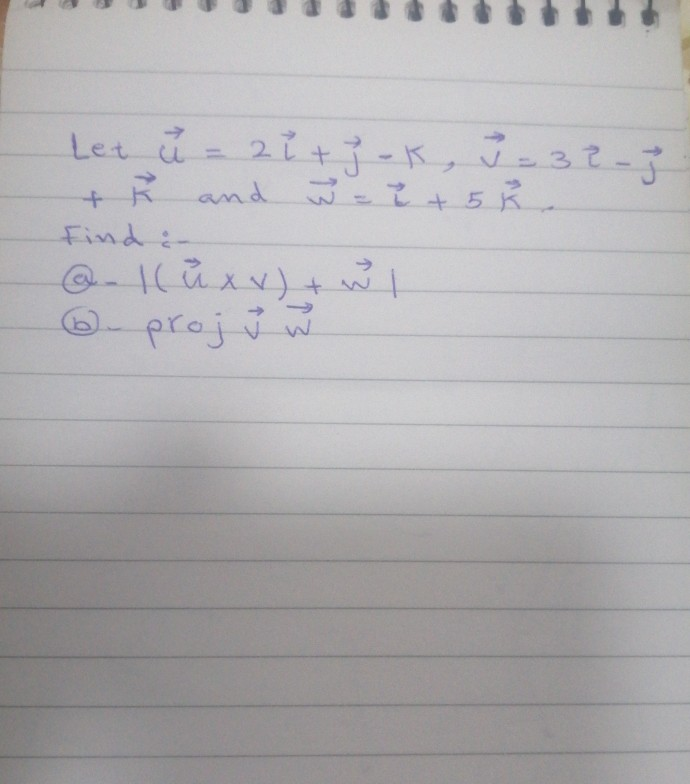 Let u⃗ = 2i⃗ + j⃗ - K, v⃗ = 3i⃗ - j⃗
+ K⃗ and w⃗ = i⃗ + 5K⃗.
Find :-
ⓐ- |(u⃗ × v) + w⃗|
ⓑ- proj v⃗ w⃗